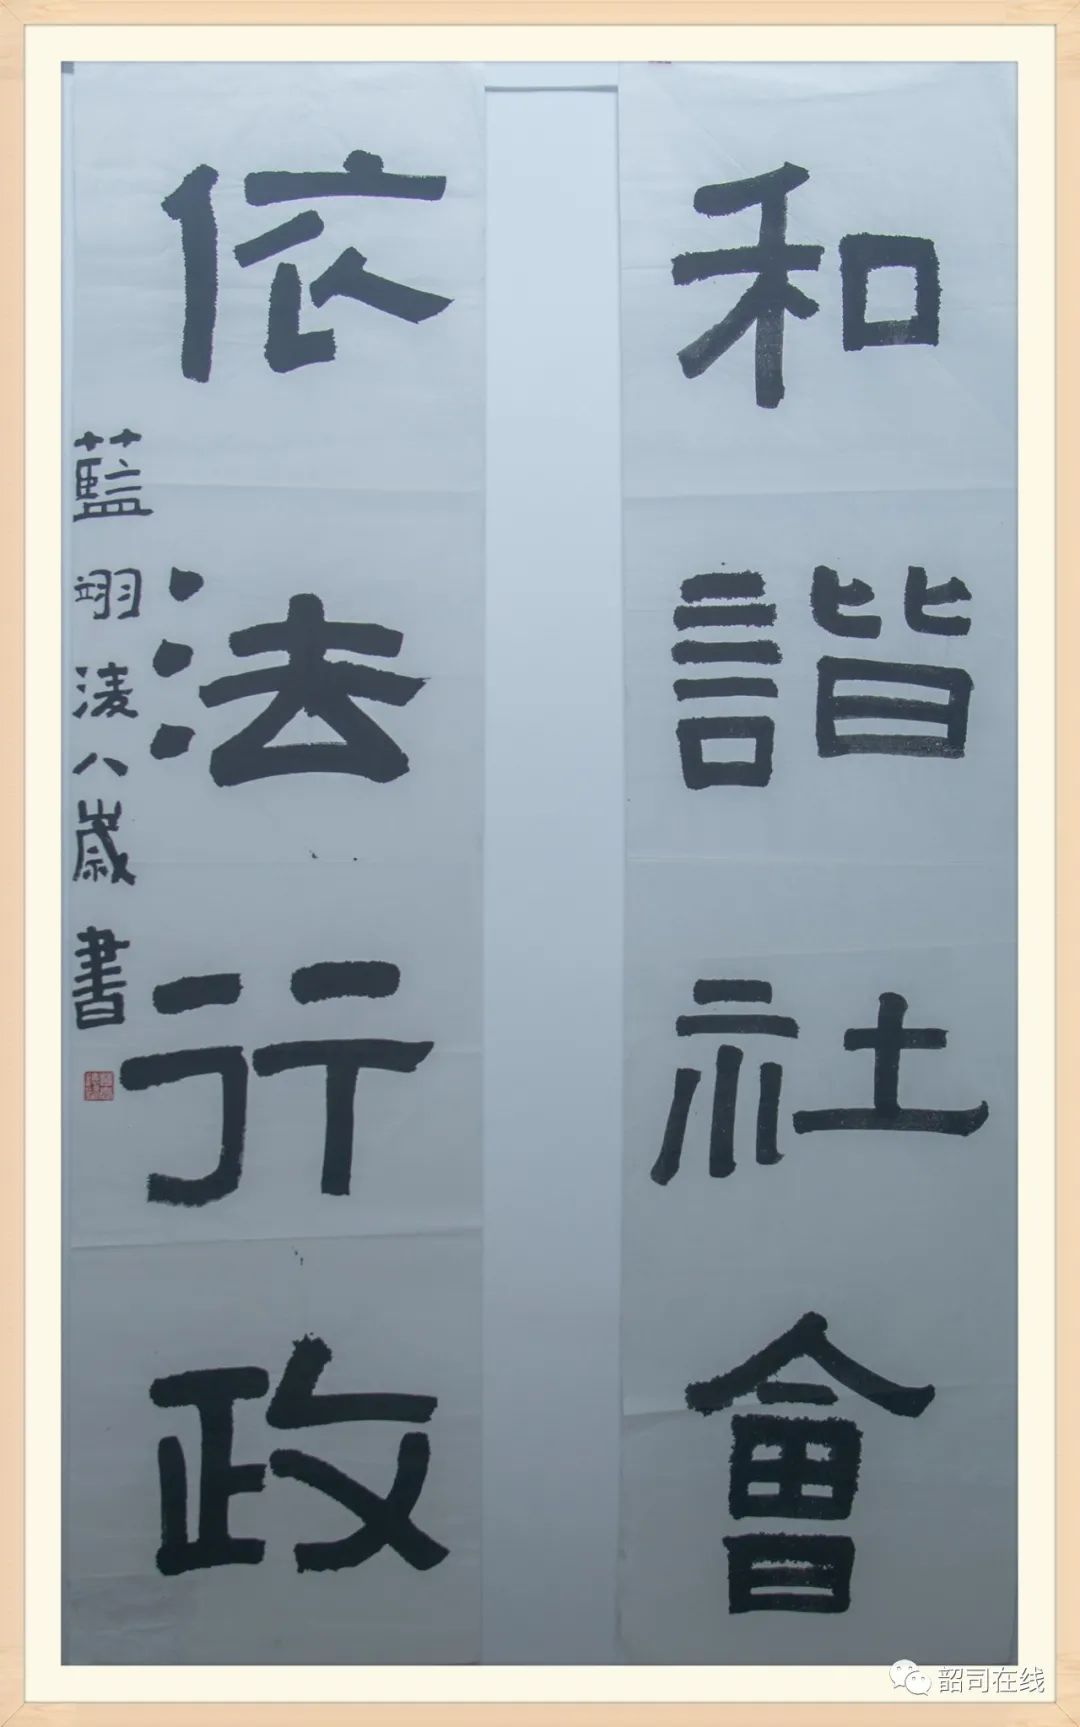 和諧社會
依法行政
藍翊淩八歲書
韶司在线